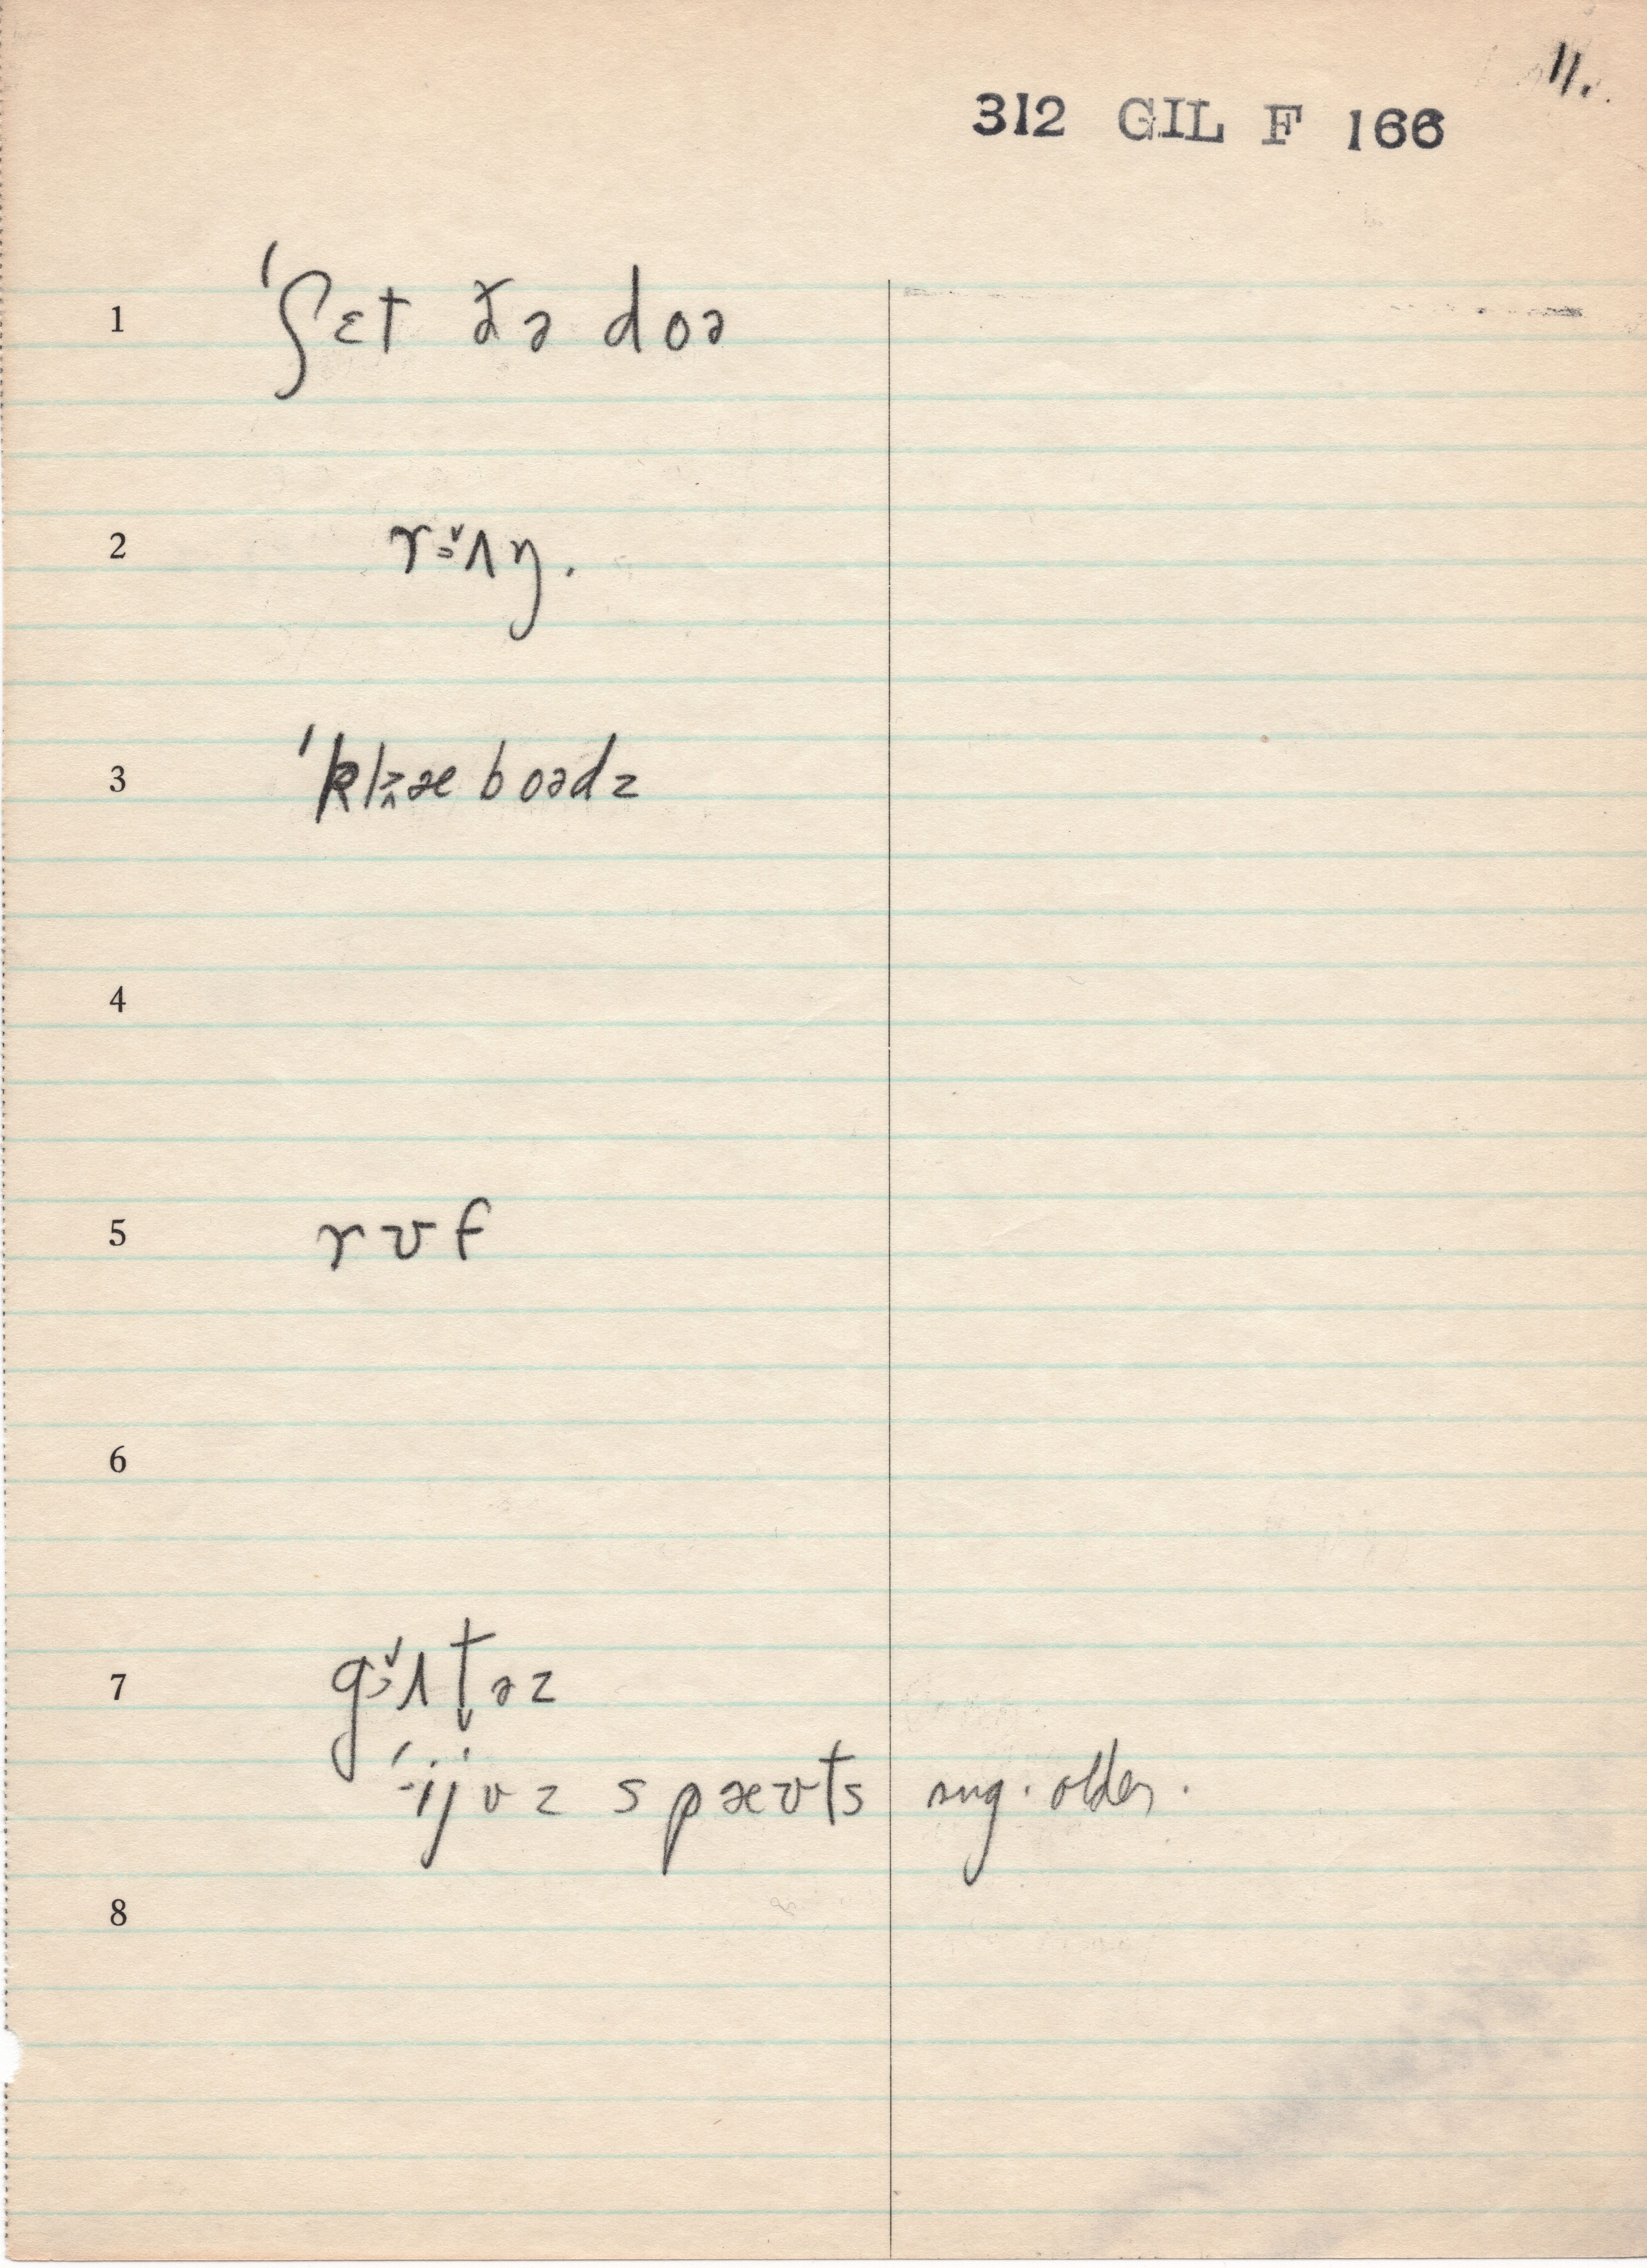 11.
312 GIL F 166
1 ˈʃɛt ðə doə
2
3 boədz
4
5 rʊf
6
7
ˈijvz spæʊts sug. older.
8